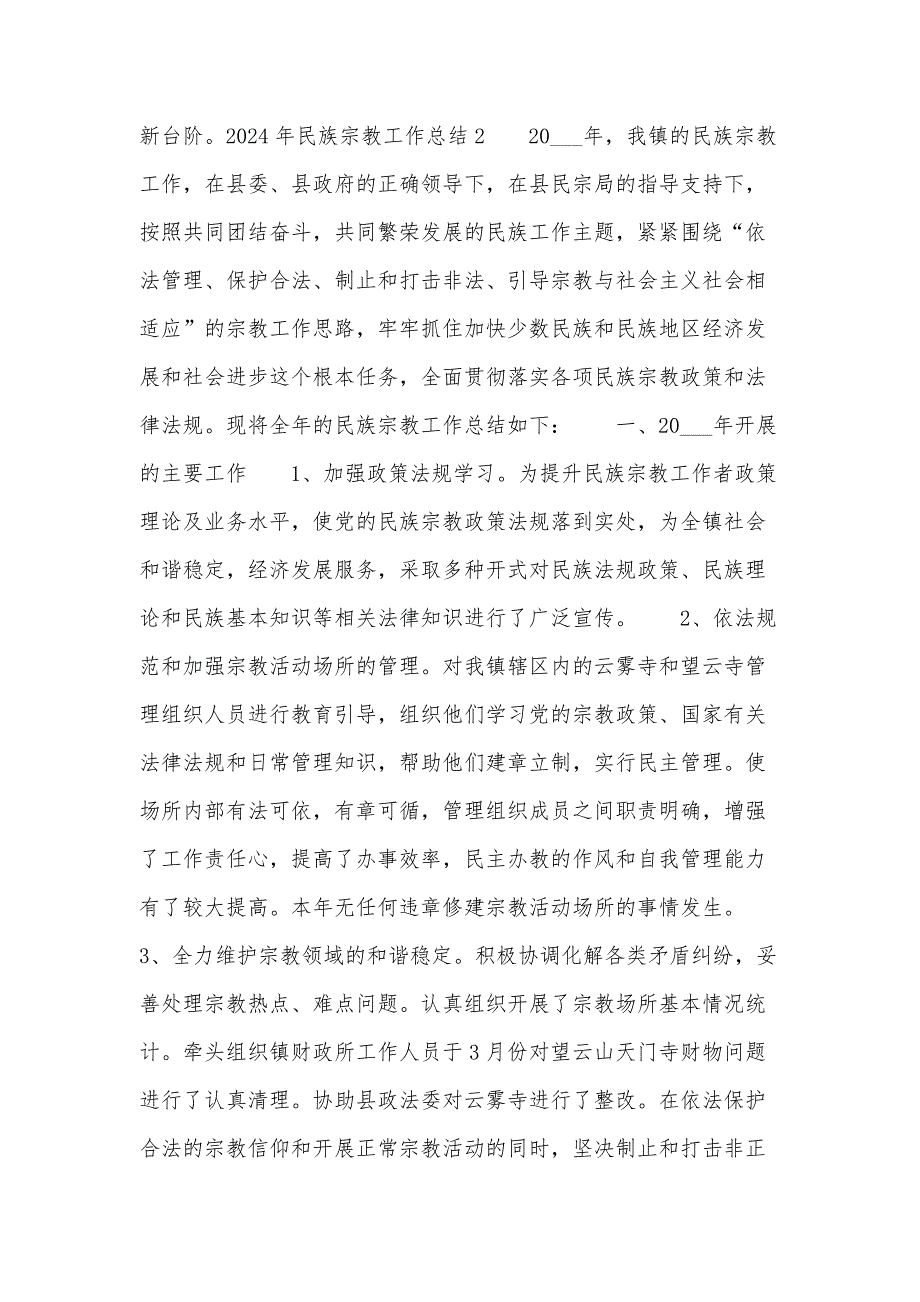 新台阶。2024 年民族宗教工作总结 2  20___年，我镇的民族宗教
工作，在县委、县政府的正确领导下，在县民宗局的指导支持下，
按照共同团结奋斗，共同繁荣发展的民族工作主题，紧紧围绕“依
法管理、保护合法、制止和打击非法、引导宗教与社会主义社会相
适应”的宗教工作思路，牢牢抓住加快少数民族和民族地区经济发
展和社会进步这个根本任务，全面贯彻落实各项民族宗教政策和法
律法规。现将全年的民族宗教工作总结如下：  一、20___年开展
的主要工作  1、加强政策法规学习。为提升民族宗教工作者政策
理论及业务水平，使党的民族宗教政策法规落到实处，为全镇社会
和谐稳定，经济发展服务，采取多种开式对民族法规政策、民族理
论和民族基本知识等相关法律知识进行了广泛宣传。  2、依法规
范和加强宗教活动场所的管理。对我镇辖区内的云雾寺和望云寺管
理组织人员进行教育引导，组织他们学习党的宗教政策、国家有关
法律法规和日常管理知识，帮助他们建章立制，实行民主管理。使
场所内部有法可依，有章可循，管理组织成员之间职责明确，增强
了工作责任心，提高了办事效率，民主办教的作风和自我管理能力
有了较大提高。本年无任何违章修建宗教活动场所的事情发生。
3、全力维护宗教领域的和谐稳定。积极协调化解各类矛盾纠纷，妥
善处理宗教热点、难点问题。认真组织开展了宗教场所基本情况统
计。牵头组织镇财政所工作人员于 3 月份对望云山天门寺财物问题
进行了认真清理。协助县政法委对云雾寺进行了整改。在依法保护
合法的宗教信仰和开展正常宗教活动的同时，坚决制止和打击非正